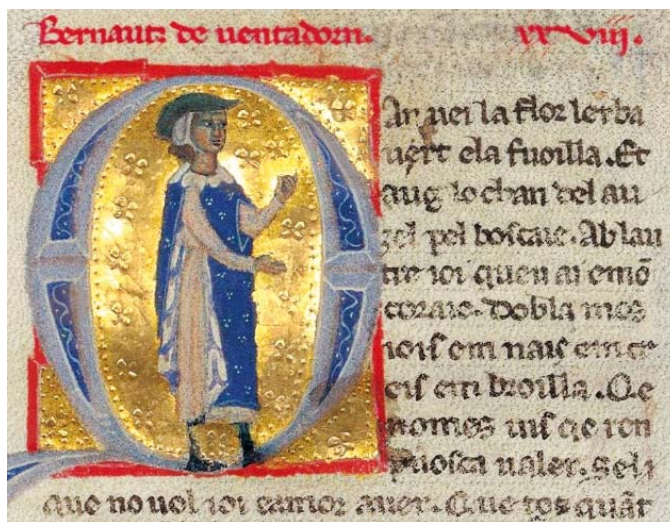 Bernautz de uentadorn. xxviii.
Qan uei la flor lerba
uert ela fuoilla. Et
aug lo chan del au
zel pel boscaie. Ab lau
tre ioi queu ai emō
coraie. dobla mos
iois em nais em cr
eis em broilla. Qe
nomes uis qe ren
puosca ualer. seli
que no uol ioi eamor auer. Que tos quāt